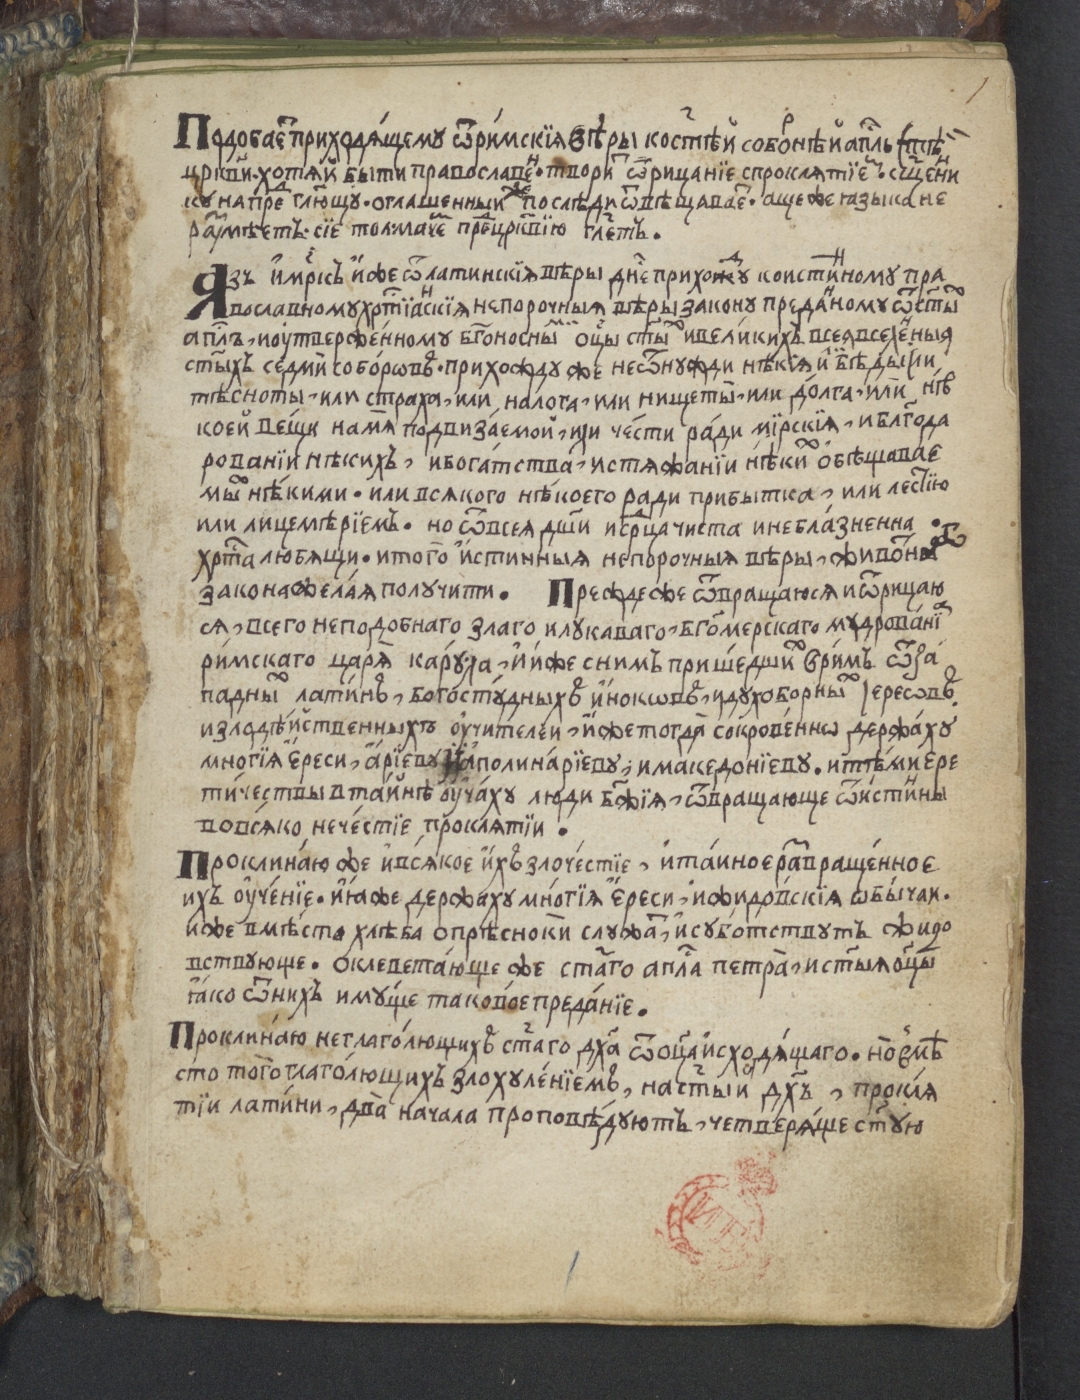 1
Подобае҇ приходѧ́щему ѿри́мскїѧ вѣ́ры ко ст҃ѣй собо́рнѣй и апⷭ҇льстѣй
цр҃кви · хотѧ́й бы́ти правосла́венъ · твори́т ѿрица́нїе с проклѧ́тїем · сщ҃енни
ку напред гл҃ющу · оглашенный же послѣди ѿвѣщавает · аще же ꙗзыка не
разумѣетъ · сїе толмаче҇ пред црк҃вїю гл҃етъ .
Ꙗзъ и҆мркъ и҆же ѿ латинскїѧ вѣры днⷭ҇ь прихождꙋ к оистинному пра
вославному хрⷭ҇тїанскїѧ непорочныѧ вѣры закону преданному ѿ ст҃ых
апⷭ҇лъ , и оу̑тверже́нному бг҃оносным ѻ҆ц҃ы ст҃ых и вели́кихъ всеѧ вселе́нныѧ
ст҃ы́хъ седми́ собо́рѡвъ · прихожду же не ѿ нужди нѣкіѧ и҆ бѣды и
тѣсноты , или страха , или налога , или нищеты̀ , или до́лга , и҆ли́ нѣ
коей ве́щи на мѧ подвиза́емой , или че́сти ра́ди мі́рскїѧ , и бл҃года
рованїи нѣкихъ , и бога́тства , и стѧжанїи нѣких обѣщавае
мых нѣ́кими · или всѧкого нѣ́коего ради прибытка , или ле́стїю
или лицемѣрїемъ · но ѿ всеѧ дш҃и и срⷣца чиста и небла́зненна ·
хрⷭ҇та любѧщи · и того̀ и҆стинныѧ непорочныѧ вѣры , живо́тна
закона жела́ѧ получити . Прежде же ѿвращаюсѧ и ѿрицаю
сѧ , всего неподобнаго злаго и лукаваго , бг҃омерскаго мудрова́нїѧ
ри́мскаго царѧ̀ ка́рула , и҆ и҆же с нимъ пришедших в ри́мъ ѿ за́
падных лати́нъ , богосту́дныхъ и҆нокѡвъ , и духоборных ересовъ
и злодѣйственныхъ оу̑чителей , и҆же тогда̀ сокрове́ннѡ держа́ху
многїѧ ереси , а́рїеву и аполина́рїеву , и македо́нїеву . и тѣ́ми ере
ти́чествы в та́йнѣ оу̑ча́ху люди бж҃їѧ , ѿвращающе ѿ и́стинны
во всѧ́ко нече́стїе проклѧ́тїи .
Проклина́ю же и҆ всѧ́кое и҆́хъ злоче́стїе , и҆ та́йное развраще́нное
ихъ оу̑че́нїе · и҆ ꙗ҆же держа́ху мно́гїѧ е҆́реси , и҆ жидо́вскїѧ ѡбы́чаи .
и҆же в мѣ́сто хлѣ́ба опрѣ́сноки слу́жат , и суббо́тствутъ жидо
вствующе . оклевета́юще же ст҃а́го апⷭ҇ла петра̀ , и ст҃ыѧ ѻц҃ы
та́ко ѿ ни́хъ иму́ще таково́е преда́нїе .
Проклина́ю неглаго́лющихъ ст҃аго дх҃а ѿ оц҃а и҆сходѧ́щаго . но в мѣ
сто того̀ глаго́лющихъ злохуле́нїемъ , на ст҃ый дх҃ъ , проклѧ
тїи лати́ни , два̀ начала проповѣ́дуютъ , четверѧ́ще ст҃ую
1